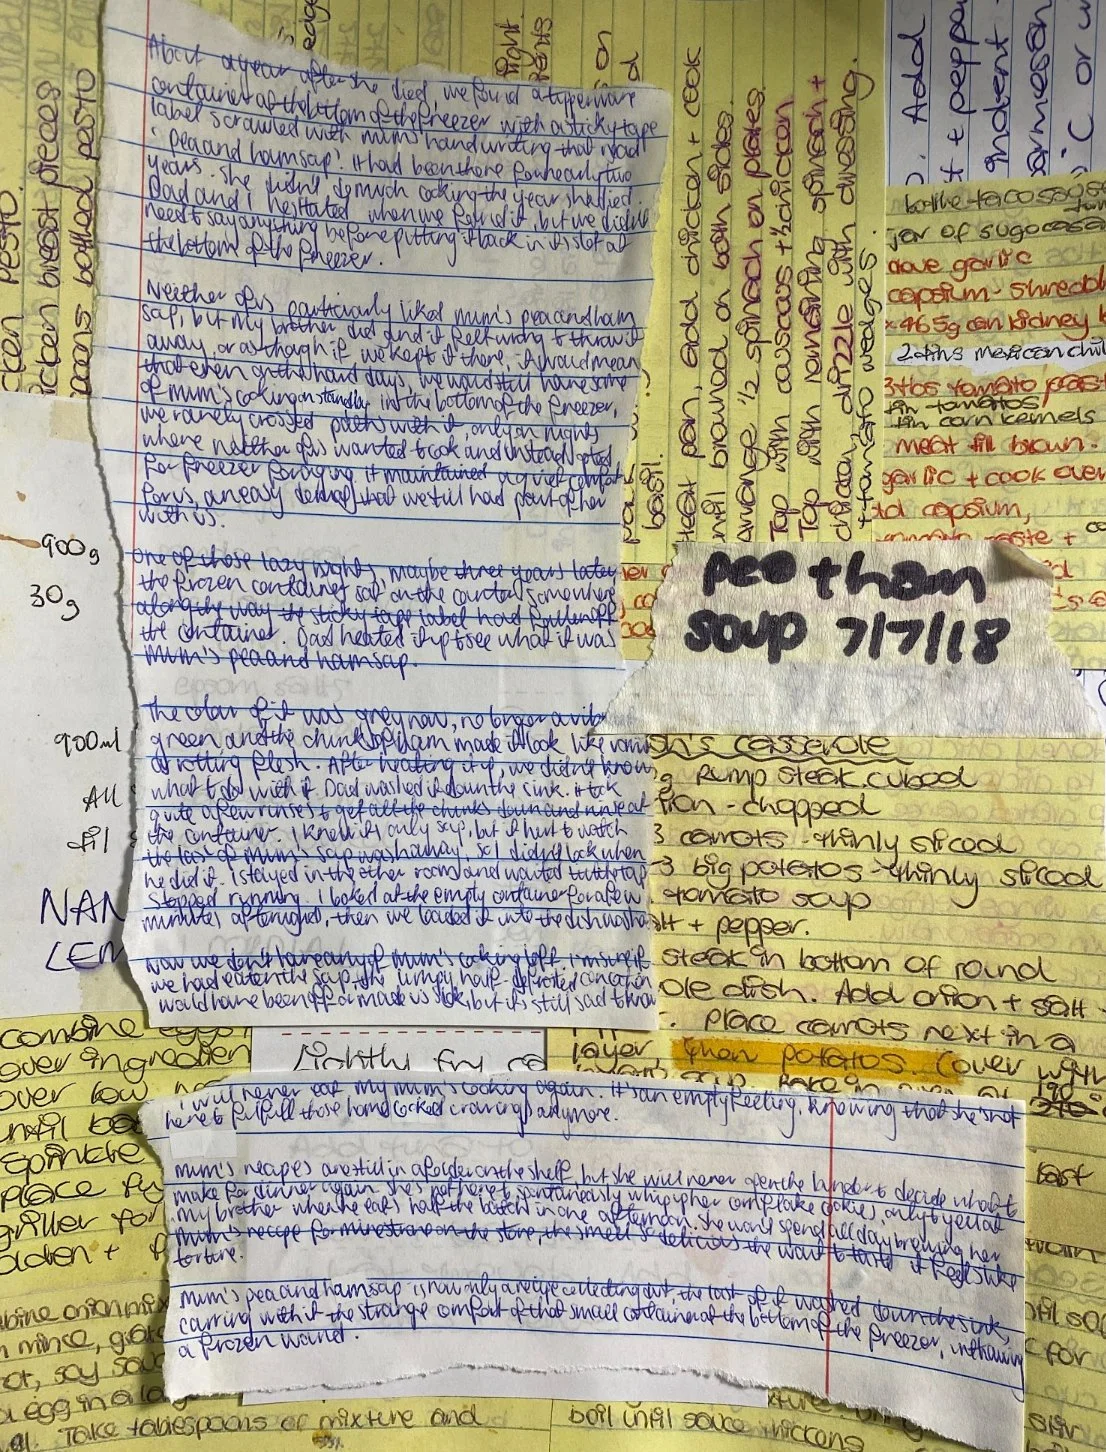 About a year after she died, we found a tupperware
container at the bottom of the freezer with a sticky tape
label scrawled with mum's handwriting that read
'pea and ham soup'. It had been there for nearly two
years. She didn't do much cooking the year she died.
Dad and I hesitated when we found it, but we didn't
need to say anything before putting it back in its slot at
the bottom of the freezer.
Neither of us particularly liked mum's pea and ham
soup, but my brother did and it felt wrong to throw it
away, or as though if we kept it there, it would mean
that even on the hard days, we would still have some
of mum's cooking on standby in the bottom of the freezer,
we rarely crossed paths with it, only on nights
where neither of us wanted to cook and instead opted
for freezer foraging. It maintained a quiet comfort
for us, an easy that we still had part of her
with us.
One of those lazy nights, maybe three years later
the frozen container sat on the counter, somewhere
along the way the sticky tape label had fallen off
the container. Dad heated it up to see what it was
Mum's pea and ham soup.
The colour of it was grey now, no longer a vib
green and the chunks of ham made it look like vomit
or rotting flesh. After heating it up, we didn't know
what to do with it. Dad washed it down the sink. It took
quite a few rinses to get all the chunks down and rinse out
the container. I know it's only soup, but it hurt to watch
the last of mum's soup wash away, so I didn't look when
he did it. I stayed in the other room and waited until the tap
stopped running. I looked at the empty container for a few
minutes afterwards, then we loaded it into the dishwasher
Now we don't have any of mum's cooking left. I'm sure if
we had eaten the soup, the lumpy half-defrosted concoction
would have been off or made us sick, but it's still sad to know
I will never eat my mum's cooking again. It's an empty feeling, knowing that she's not
here to fulfill those home cooked cravings anymore.
Mum's recipes are still in a folder on the shelf, but she will never open the binder to decide what to
make for dinner again. She's not here to spontaneously whip up her cornflake cookies, only to yell at
my brother when he eats half the batch in one afternoon. She won't spend all day brewing her
mum's recipe for minestrone on the stove, the smell so delicious the wait to taste it feels like
torture.
Mum's pea and ham soup is now only a recipe collecting dust, the last of it washed down the sink,
carrying with it the strange comfort of that small container at the bottom of the freezer, unthawing
a frozen wound.
pea + ham
soup 7/7/18
900g
30g
900ml
All
NAN
LEM
chicken breast pieces
bottled pesto
heat pan, add chicken + cook
until browned on both sides.
Arrange 1/2 spinach on plates.
Top with couscous + chicken
Top with remaining spinach +
chicken, drizzle with dressing.
+ tomato wedges.
basil.
Add
+ peppa
C or
bottle taco sauce
jar of sugocasa
clove garlic
capsium - shredd
x 465g can kidney
2 tins mexican chil
3 tbs tomato paste
tin tomatos
tin corn kernels
meat till brown.
garlic + cook over
capsium,
casserole
Rump steak. cubed
- chopped
3 carrots - thinly sliced
3 big potatos - thinly sliced
tomato soup
+ pepper.
steak in bottom of round
dish. Add onion + salt
Place carrots next in a
layer, then potatos. Cover with
190
Lightly fry
combine eggs
over ingredien
over low
until
sprinkle
place
griller for
golden +
mince,
say
egg in a
Take tablespoons of mixture and
boil until sauce thickens